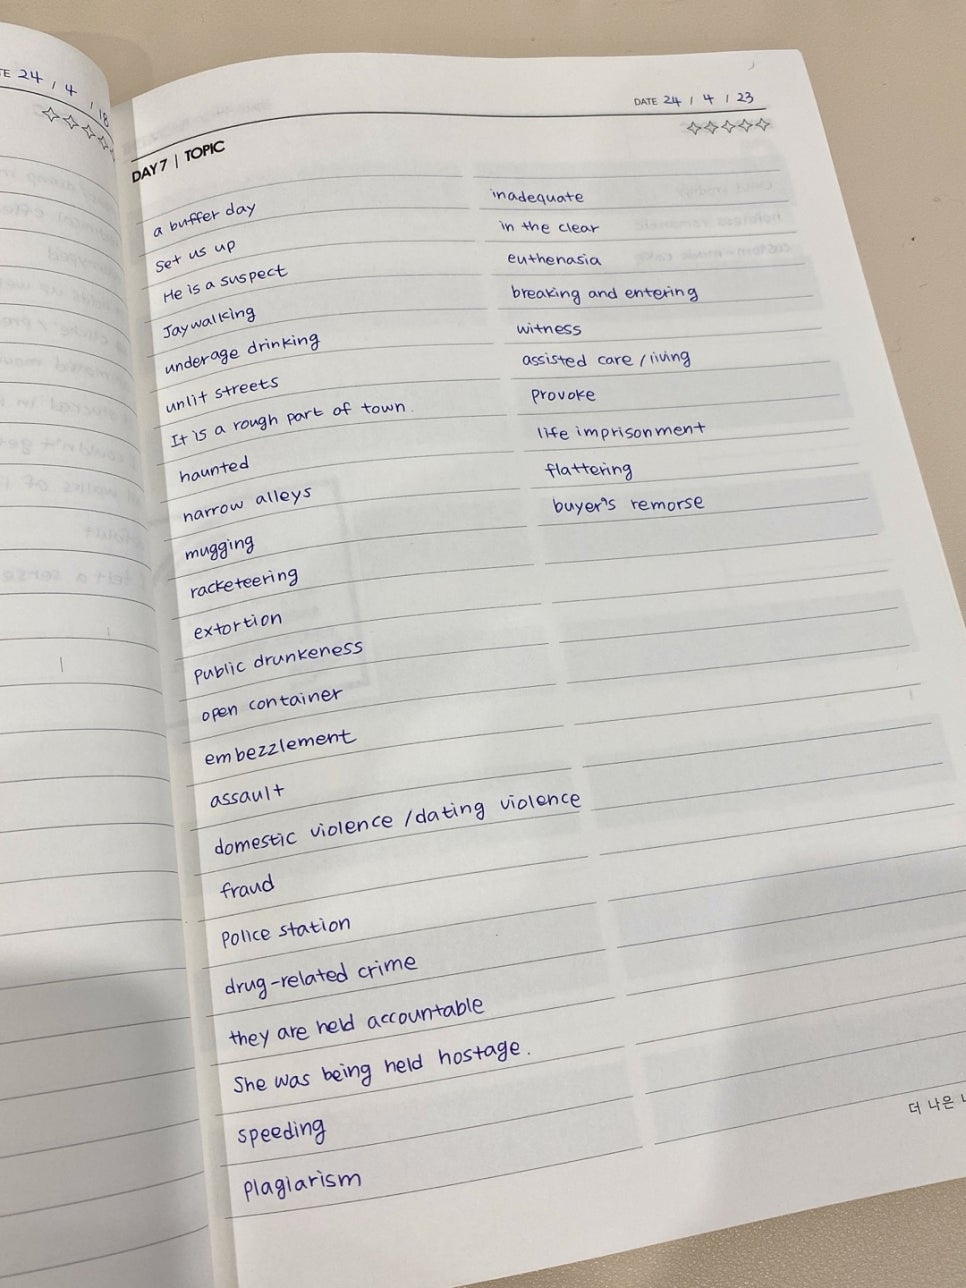 24 / 4 / 18
DATE 24 / 4 / 23
DAY 7 | TOPIC
a buffer day
set us up
He is a suspect
Jaywalking
underage drinking
unlit streets
It is a rough part of town.
haunted
narrow alleys
mugging
racketeering
extortion
public drunkeness
open container
embezzlement
assault
domestic violence /dating violence
fraud
Police station
drug-related crime
they are held accountable
She was being held hostage.
speeding
plagiarism
inadequate
in the clear
euthenasia
breaking and entering
witness
assisted care /living
provoke
life imprisonment
flattering
buyer's remorse
더 나은